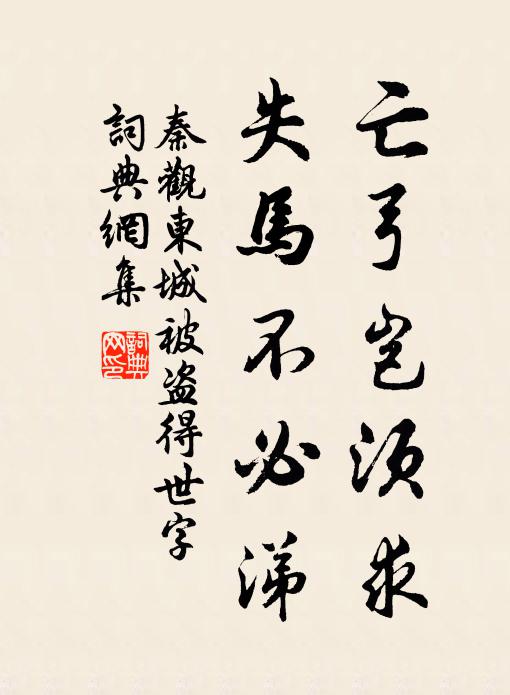 亡弓豈須求
失馬不必涕
秦觀東城被盗得世字
詞典網集
詞典網印